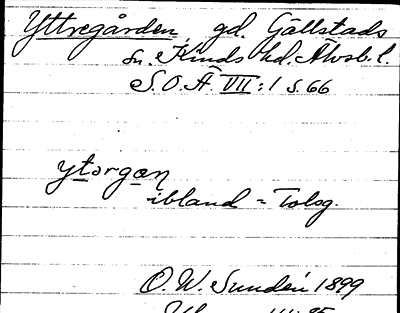 Yttregården, gd. Gällstads
sn. Kinds hd. Älvsb. l.
S.O.Ä. VII:1 s. 66
ytərgɑn
ibland = Tolsg.
O. W. Sundén 1899